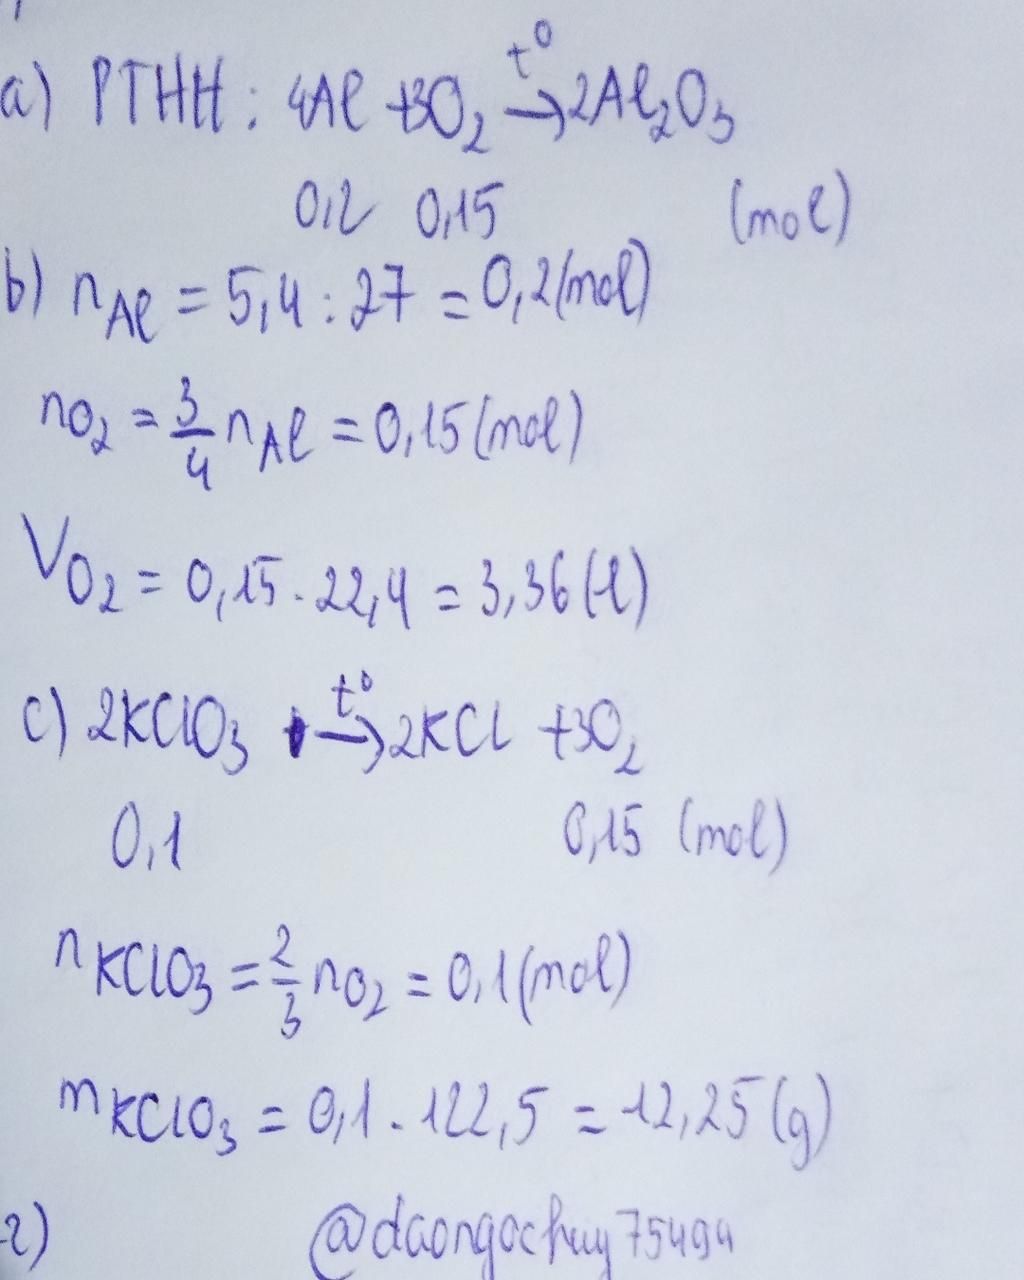 a) PTHH: 4Al + 3O₂ t⁰→ 2Al₂O₃
0,2 0,15 (mol)
b) nAl = 5,4 : 27 = 0,2 (mol)
nO₂ = 3/4 nAl = 0,15 (mol)
VO₂ = 0,15 . 22,4 = 3,36 (l)
c) 2KClO₃ t⁰→ 2KCl + 3O₂
0,1 0,15 (mol)
nKClO₃ = 2/3 nO₂ = 0,1 (mol)
mKClO₃ = 0,1 . 122,5 = 12,25 (g)
2) @daongochuy75494